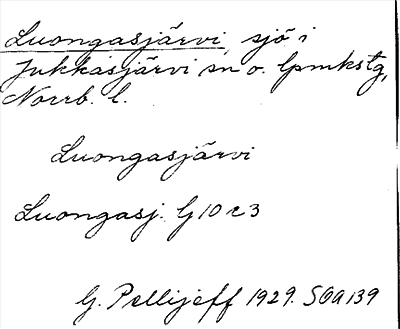 Luongasjärvi, sjö i
Jukkasjärvi sn o. lpmkstg,
Norrb. l.
Luongasjärvi
Luongasj. G10 c3
G. Pellijeff 1929. SOA139